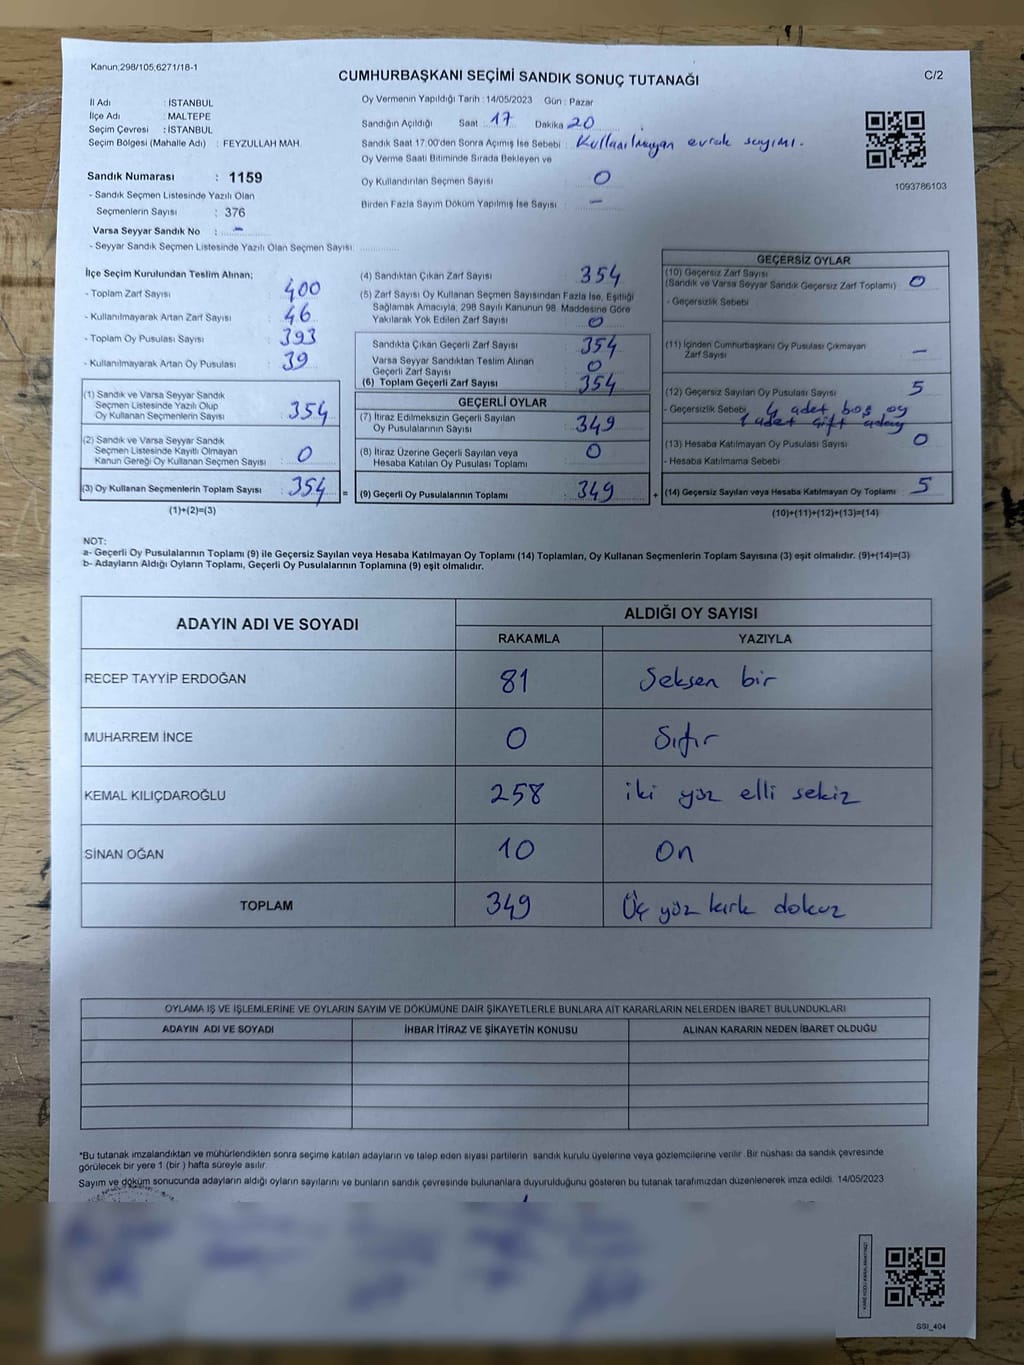 Kanun,298/105,6271/18-1
CUMHURBAŞKANI SEÇİMİ SANDIK SONUÇ TUTANAĞI
C/2
İl Adı : İSTANBUL
İlçe Adı : MALTEPE
Seçim Çevresi : İSTANBUL
Seçim Bölgesi (Mahalle Adı) : FEYZULLAH MAH.
Oy Vermenin Yapıldığı Tarih : 14/05/2023 Gün : Pazar
Sandığın Açıldığı Saat : 17 Dakika 20
Sandık Saat 17:00'den Sonra Açımış İse Sebebi : Kullanılmayan evrak sayımı.
Oy Verme Saati Bitiminde Sırada Bekleyen ve
Oy Kullandırılan Seçmen Sayısı : 0
Birden Fazla Sayım Döküm Yapılmış İse Sayısı : –
1093786103
Sandık Numarası : 1159
- Sandık Seçmen Listesinde Yazılı Olan
Seçmenlerin Sayısı : 376
Varsa Seyyar Sandık No : –
- Seyyar Sandık Seçmen Listesinde Yazılı Olan Seçmen Sayısı:
İlçe Seçim Kurulundan Teslim Alınan;
- Toplam Zarf Sayısı : 400
- Kullanılmayarak Artan Zarf Sayısı : 46
- Toplam Oy Pusulası Sayısı : 393
- Kullanılmayarak Artan Oy Pusulası : 39
(1) Sandık ve Varsa Seyyar Sandık
Seçmen Listesinde Yazılı Olup
Oy Kullanan Seçmenlerin Sayısı : 354
(2) Sandık ve Varsa Seyyar Sandık
Seçmen Listesinde Kayıtlı Olmayan
Kanun Gereği Oy Kullanan Seçmen Sayısı : 0
(3) Oy Kullanan Seçmenlerin Toplam Sayısı : 354 =
(1)+(2)=(3)
(4) Sandıktan Çıkan Zarf Sayısı : 354
(5) Zarf Sayısı Oy Kullanan Seçmen Sayısından Fazla İse, Eşitliği
Sağlamak Amacıyla, 298 Sayılı Kanunun 98. Maddesine Göre
Yakılarak Yok Edilen Zarf Sayısı : 0
Sandıkta Çıkan Geçerli Zarf Sayısı : 354
Varsa Seyyar Sandıktan Teslim Alınan
Geçerli Zarf Sayısı : 0
(6) Toplam Geçerli Zarf Sayısı : 354
GEÇERLİ OYLAR
(7) İtiraz Edilmeksizin Geçerli Sayılan
Oy Pusulalarının Sayısı : 349
(8) İtiraz Üzerine Geçerli Sayılan veya
Hesaba Katılan Oy Pusulası Toplamı : 0
(9) Geçerli Oy Pusulalarının Toplamı : 349 +
GEÇERSİZ OYLAR
(10) Geçersiz Zarf Sayısı
(Sandık ve Varsa Seyyar Sandık Geçersiz Zarf Toplamı) : 0
- Geçersizlik Sebebi :
(11) İçinden Cumhurbaşkanı Oy Pusulası Çıkmayan
Zarf Sayısı : –
(12) Geçersiz Sayılan Oy Pusulası Sayısı : 5
- Geçersizlik Sebebi : 4 adet boş oy
1 adet çift aday
(13) Hesaba Katılmayan Oy Pusulası Sayısı : 0
- Hesaba Katılmama Sebebi :
(14) Geçersiz Sayılan veya Hesaba Katılmayan Oy Toplamı : 5
(10)+(11)+(12)+(13)=(14)
NOT:
a- Geçerli Oy Pusulalarının Toplamı (9) ile Geçersiz Sayılan veya Hesaba Katılmayan Oy Toplamı (14) Toplamları, Oy Kullanan Seçmenlerin Toplam Sayısına (3) eşit olmalıdır. (9)+(14)=(3)
b- Adayların Aldığı Oyların Toplamı, Geçerli Oy Pusulalarının Toplamına (9) eşit olmalıdır.
ADAYIN ADI VE SOYADI
ALDIĞI OY SAYISI
RAKAMLA YAZIYLA
RECEP TAYYİP ERDOĞAN 81 Seksen bir
MUHARREM İNCE 0 Sıfır
KEMAL KILIÇDAROĞLU 258 iki yüz elli sekiz
SİNAN OĞAN 10 On
TOPLAM 349 Üç yüz kırk dokuz
OYLAMA İŞ VE İŞLEMLERİNE VE OYLARIN SAYIM VE DÖKÜMÜNE DAİR ŞİKAYETLERLE BUNLARA AİT KARARLARIN NELERDEN İBARET BULUNDUKLARI
ADAYIN ADI VE SOYADI İHBAR İTİRAZ VE ŞİKAYETİN KONUSU ALINAN KARARIN NEDEN İBARET OLDUĞU
*Bu tutanak imzalandıktan ve mühürlendikten sonra seçime katılan adayların ve talep eden siyasi partilerin sandık kurulu üyelerine veya gözlemcilerine verilir. Bir nüshası da sandık çevresinde
görülecek bir yere 1 (bir ) hafta süreyle asılır.
Sayım ve döküm sonucunda adayların aldığı oyların sayılarını ve bunların sandık çevresinde bulunanlara duyurulduğunu gösteren bu tutanak tarafımızdan düzenlenerek imza edildi. 14/05/2023
SSI_404